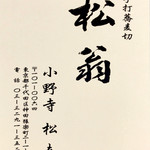 手打蕎麦切
松翁
小野寺 松夫
〒一〇一-〇〇六四
東京都千代田区神田猿楽町二-一-
電話 〇三-三二九一-三五